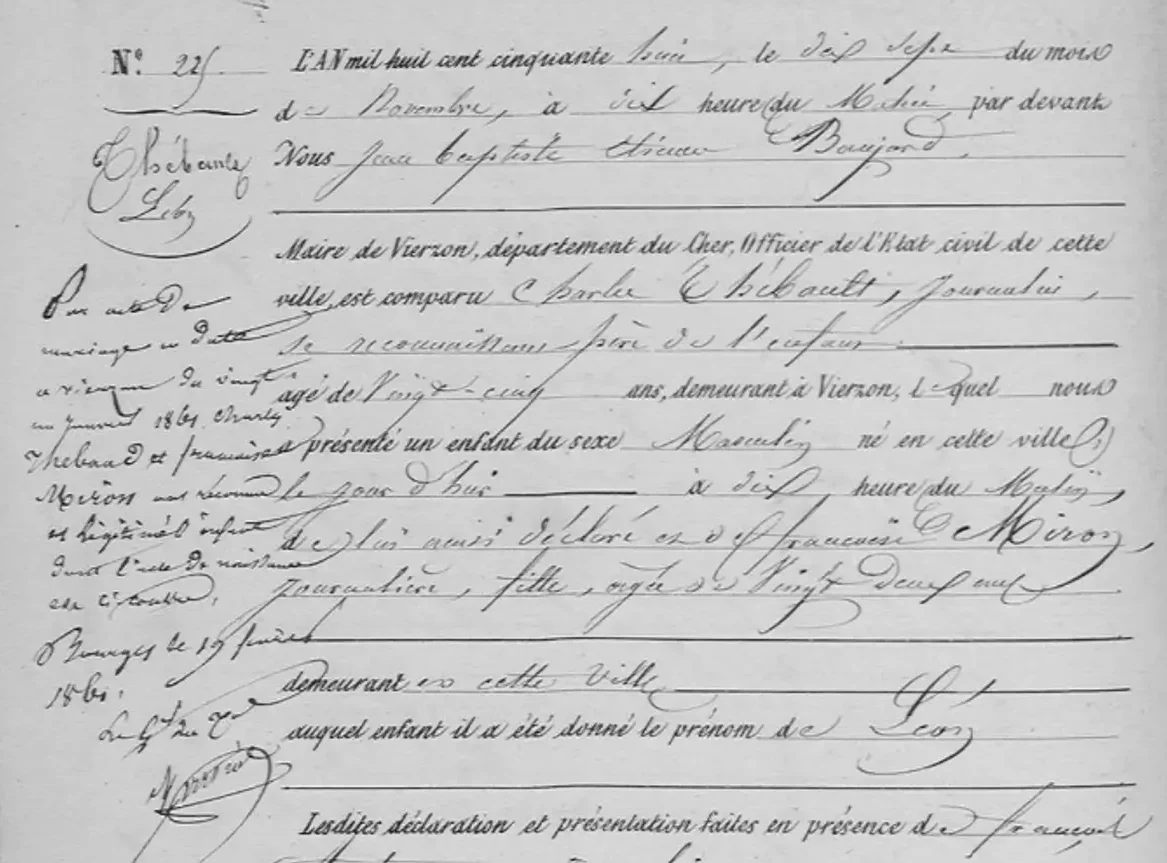 N.° 225
Thébault
Léon
Par acte de
mariage en date
a vierzon du vingt
un janvier 1861 Charles
Thebaud et françoise
Miron ont reconnu
et légitimé l'enfant
dont l'acte de naissance
est ci contre.
Bourges le 19 février
1861.
Le Gr du Tal
L'AN mil huit cent cinquante huit, le dix sept du mois
de Novembre, à dix heure du Matin, par devant
Nous Jean Baptiste Etienne Beaujard.
Maire de Vierzon, département du Cher, Officier de l'Etat civil de cette
ville, est comparu Charles Thébault, Journalier,
se reconnaissant père de l'enfant
âgé de Vingt-cinq ans, demeurant à Vierzon, lequel nous
a présenté un enfant du sexe Masculin né en cette ville,
le jour d'hui à dix heure du Matin,
de lui ainsi déclaré et de françoise Miron,
journalière, fille, âgée de Vingt Deux ans
demeurant en cette Ville
auquel enfant il a été donné le prénom de Léon
Lesdites déclaration et présentation faites en présence de françois